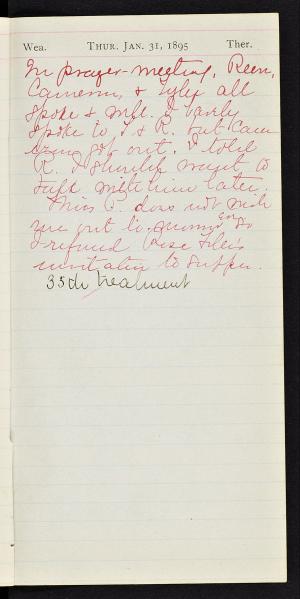 Wea. THUR. JAN. 31, 1895 Ther.
In prayer-meeting, Reen,
Cameron, & Tyler all
spoke & well. I barely
spoke to T & R. but Cam
eron got out. I told
R. I should want to
talk with him later.
Miss P. does not wish
me out to-morrow so
I refused
invitation to supper.
35th treatment